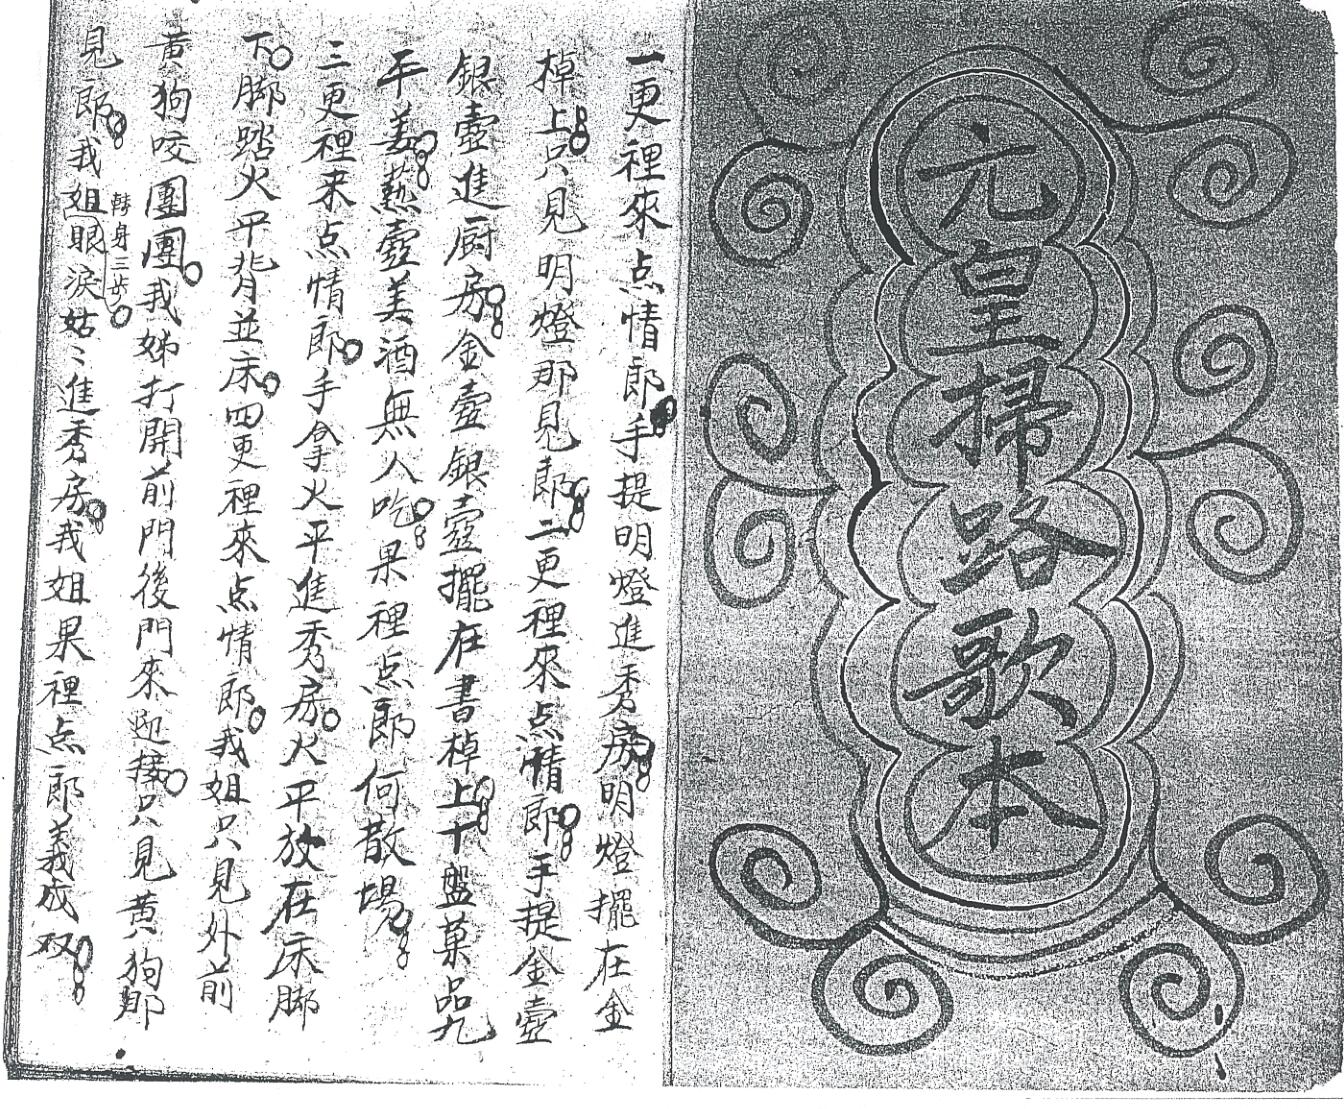 元皇掃路歌本
一更裡來点情郎手提明燈進秀房明燈擺在金
棹上只見明燈那見郎二更裡來点情郎手提金壺
銀壺進厨房金壺銀壺擺在書棹上十盤菓品九
平姜𤍠壺美酒無人吃果裡点郎何散場
三更裡来点情郎手拿火平進秀房火平放在床脚
下脚踏火平背並床四更裡來点情郎我姐只見外前
黃狗咬團團我姊打開前門後門來迎接只見黃狗郎
轉身三步
見郎我姐眼淚姑〻進秀房我姐果裡点郎義成双